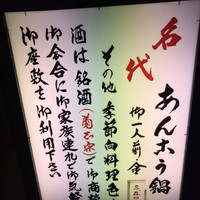 名代
あんこう鍋
御一人前・金
その他 季節向料理色
酒は銘酒(菊正宗)で御商
御会合に御家族連れで御気軽
御座敷を御利用下さい